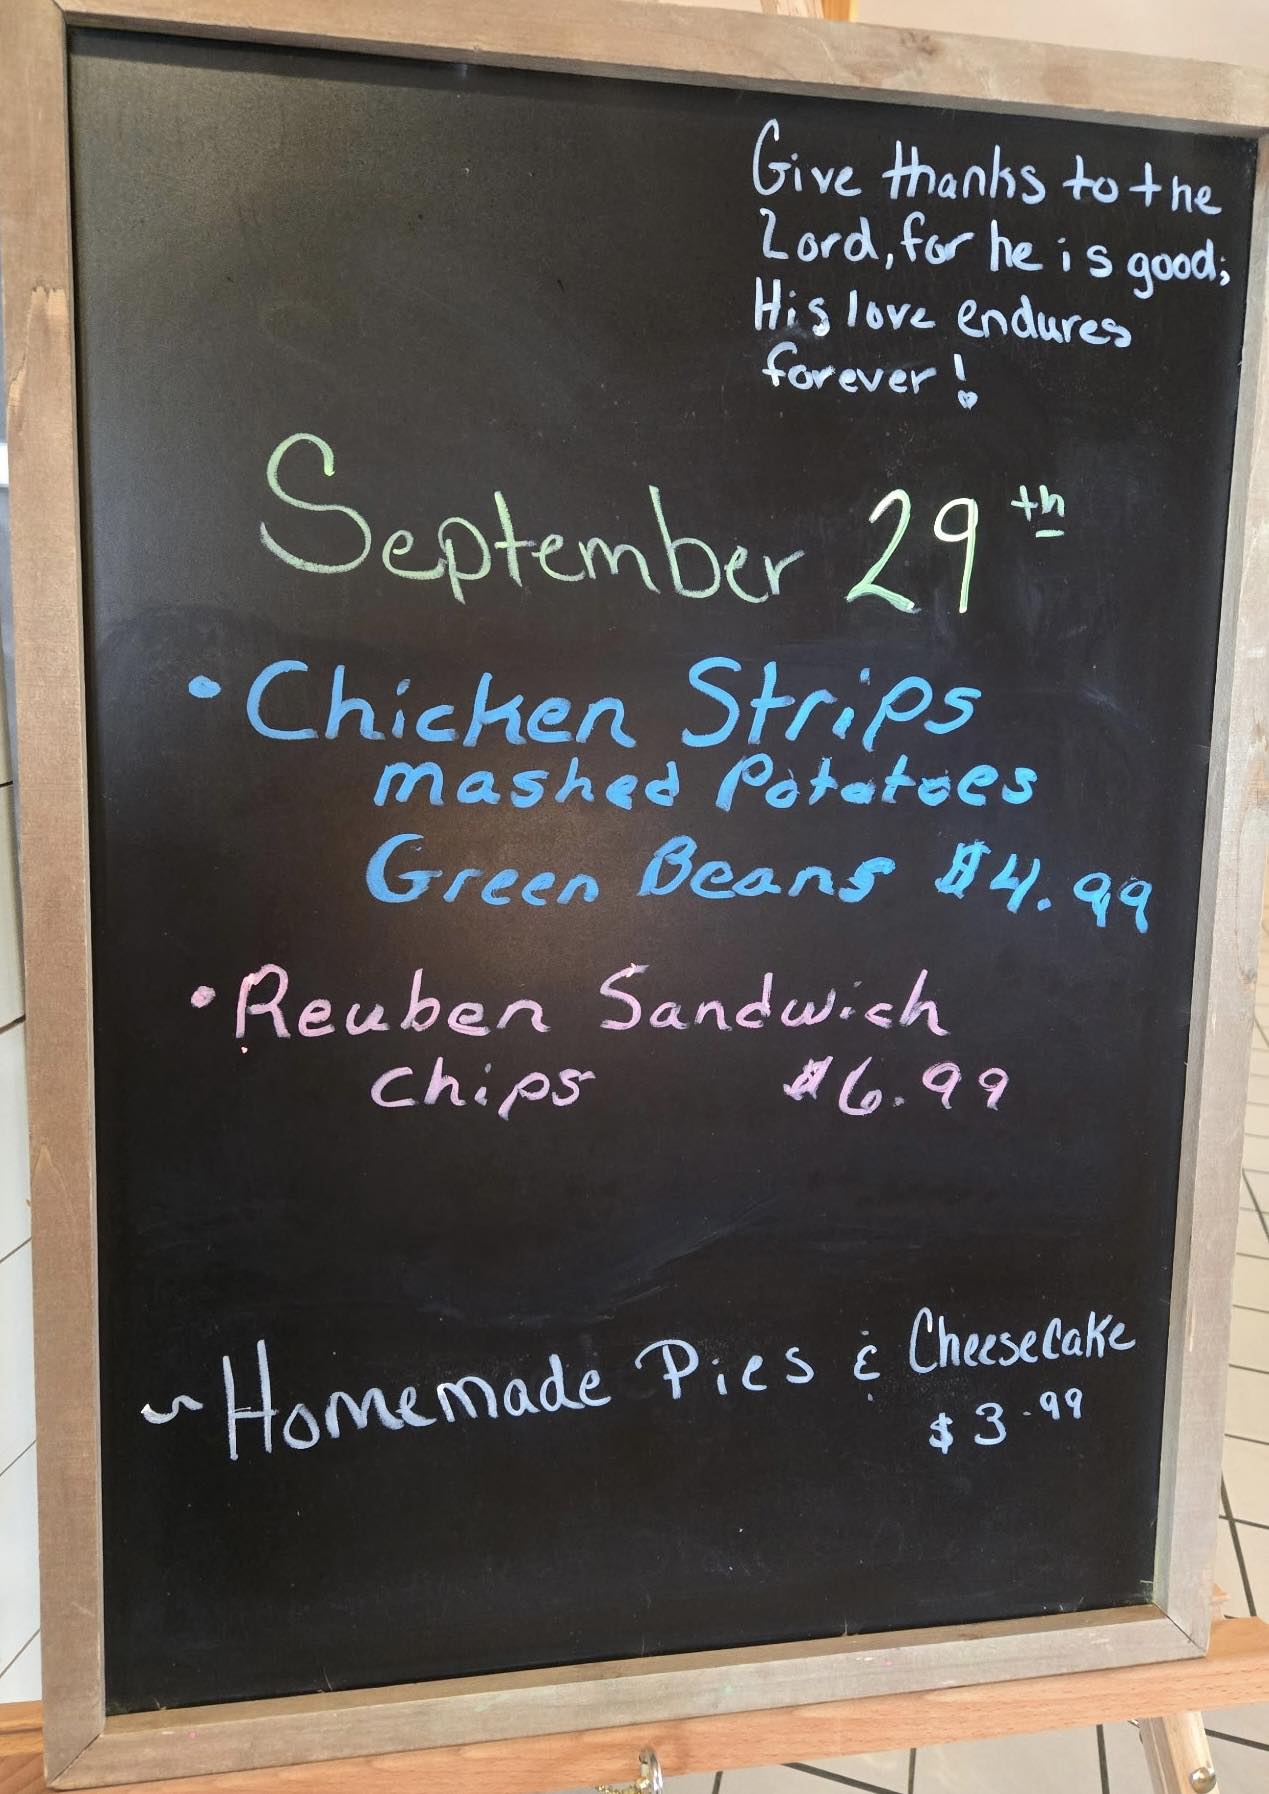 Give thanks to the
Lord, for he is good;
His love endures
forever!
September 29th
• Chicken Strips
mashed Potatoes
Green Beans $4.99
• Reuben Sandwich
chips $6.99
~ Homemade Pies & Cheesecake
$3.99